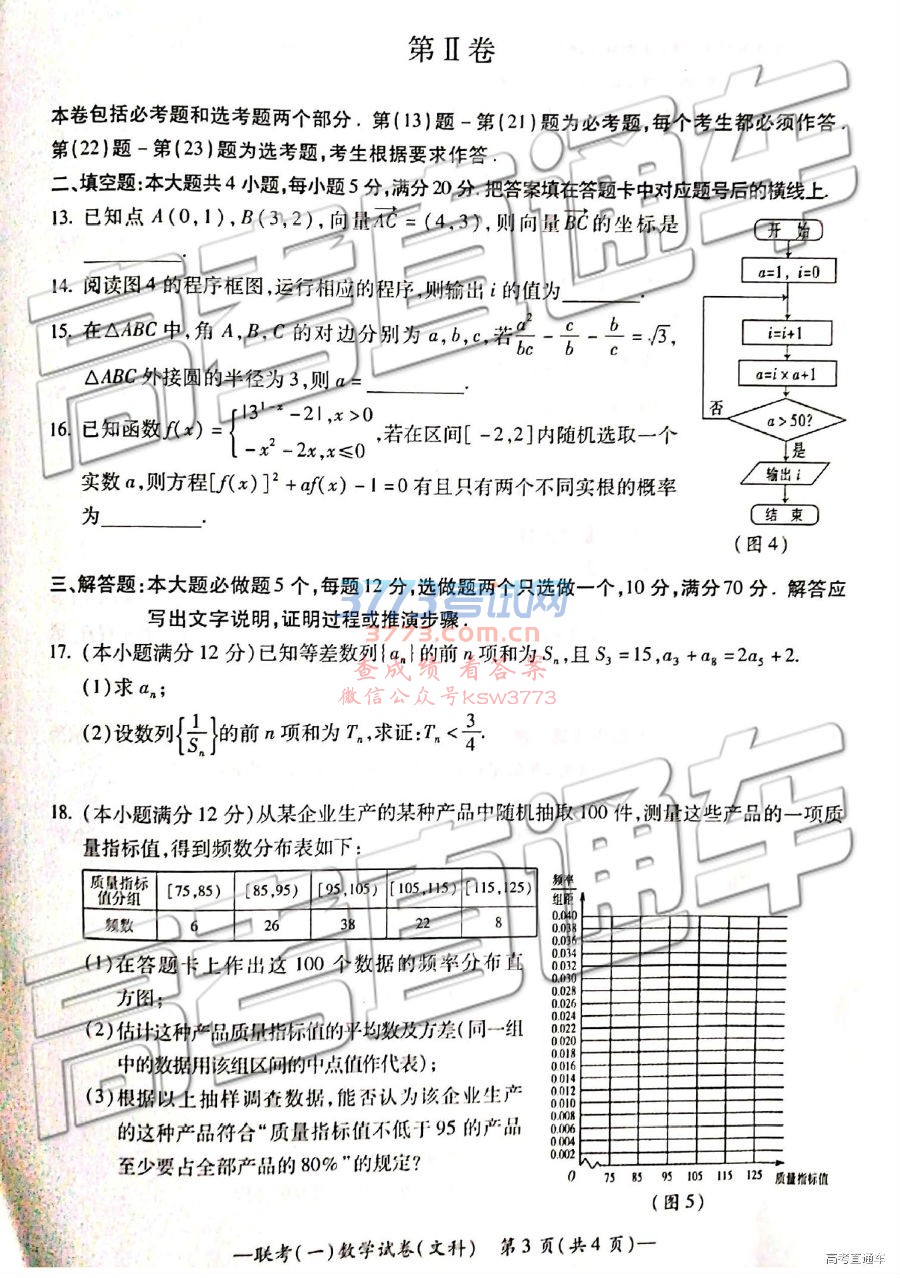 第Ⅱ卷
本卷包括必考题和选考题两个部分．第(13)题－第(21)题为必考题，每个考生都必须作答．
第(22)题－第(23)题为选考题，考生根据要求作答．
二、填空题：本大题共4小题，每小题5分，满分20分．把答案填在答题卡中对应题号后的横线上．
13. 已知点A(0,1)，B(3,2)，向量AC=(4,3)，则向量BC的坐标是
________．
14. 阅读图4的程序框图，运行相应的程序，则输出i的值为________．
15. 在△ABC中，角A,B,C的对边分别为a,b,c，若a²/bc－c/b－b/c=√3，
△ABC外接圆的半径为3，则a=________．
16. 已知函数f(x)={|3^(1-x)－2|,x>0
－x²－2x,x≤0，若在区间[－2,2]内随机选取一个
实数a，则方程[f(x)]²+af(x)－1=0有且只有两个不同实根的概率
为________．
开始
a=1, i=0
i=i+1
a=i×a+1
否
a>50?
是
输出i
结束
(图4)
三、解答题：本大题必做题5个，每题12分，选做题两个只选做一个，10分，满分70分．解答应
写出文字说明，证明过程或推演步骤．
3773考试网
3773.com.cn
查成绩 看答案
微信公众号ksw3773
17. (本小题满分12分)已知等差数列{aₙ}的前n项和为Sₙ，且S₃=15,a₃+a₈=2a₅+2.
(1)求aₙ；
(2)设数列{1/Sₙ}的前n项和为Tₙ，求证：Tₙ<3/4.
18. (本小题满分12分)从某企业生产的某种产品中随机抽取100件，测量这些产品的一项质
量指标值，得到频数分布表如下：
质量指标值分组 [75,85) [85,95) [95,105) [105,115) [115,125)
频数 6 26 38 22 8
(1)在答题卡上作出这100个数据的频率分布直
方图；
(2)估计这种产品质量指标值的平均数及方差(同一组
中的数据用该组区间的中点值作代表)；
(3)根据以上抽样调查数据，能否认为该企业生产
的这种产品符合“质量指标值不低于95的产品
至少要占全部产品的80%”的规定？
频率
组距
0.040
0.038
0.036
0.034
0.032
0.030
0.028
0.026
0.024
0.022
0.020
0.018
0.016
0.014
0.012
0.010
0.008
0.006
0.004
0.002
0 75 85 95 105 115 125 质量指标值
(图5)
—联考(一)数学试卷(文科) 第3页(共4页)—
高考直通车
高考直通车
高考直通车